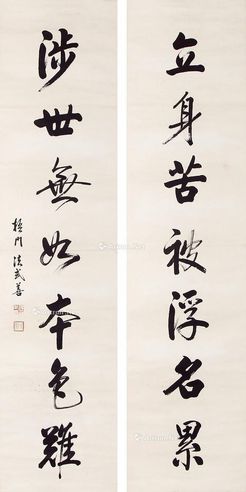 立身苦被浮名累
涉世無如本色難
梧門法式善